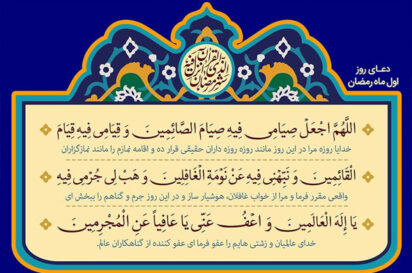 دعـای روز
اول ماه رمضان
شهر رمضان الذی انزل فیه القرآن
اَللّهُمَّ اجْعَلْ صِیامی فیهِ صِیامَ الصّائِمینَ وَ قِیامی فیهِ قِیامَ
خدایا روزه مرا در این روز مانند روزه روزه داران حقیقی قرار ده و اقامه نمازم را مانند نمازگزاران
الْقائِمینَ وَ نَبِّهْنی فیهِ عَنْ نَوْمَةِ الْغافِلینَ وَ هَبْ لی جُرْمی فیهِ
واقعی مقرر فرما و مرا از خواب غافلان، هوشیار ساز و در این روز جرم و گناهم را ببخش ای
یا اِلهَ الْعالَمینَ وَ اعْفُ عَنّی یا عافِیاً عَنِ الْمُجْرِمینَ
خدای عالمیان و زشتی هایم را عفو فرما ای عفو کننده از گناهکاران عالم.